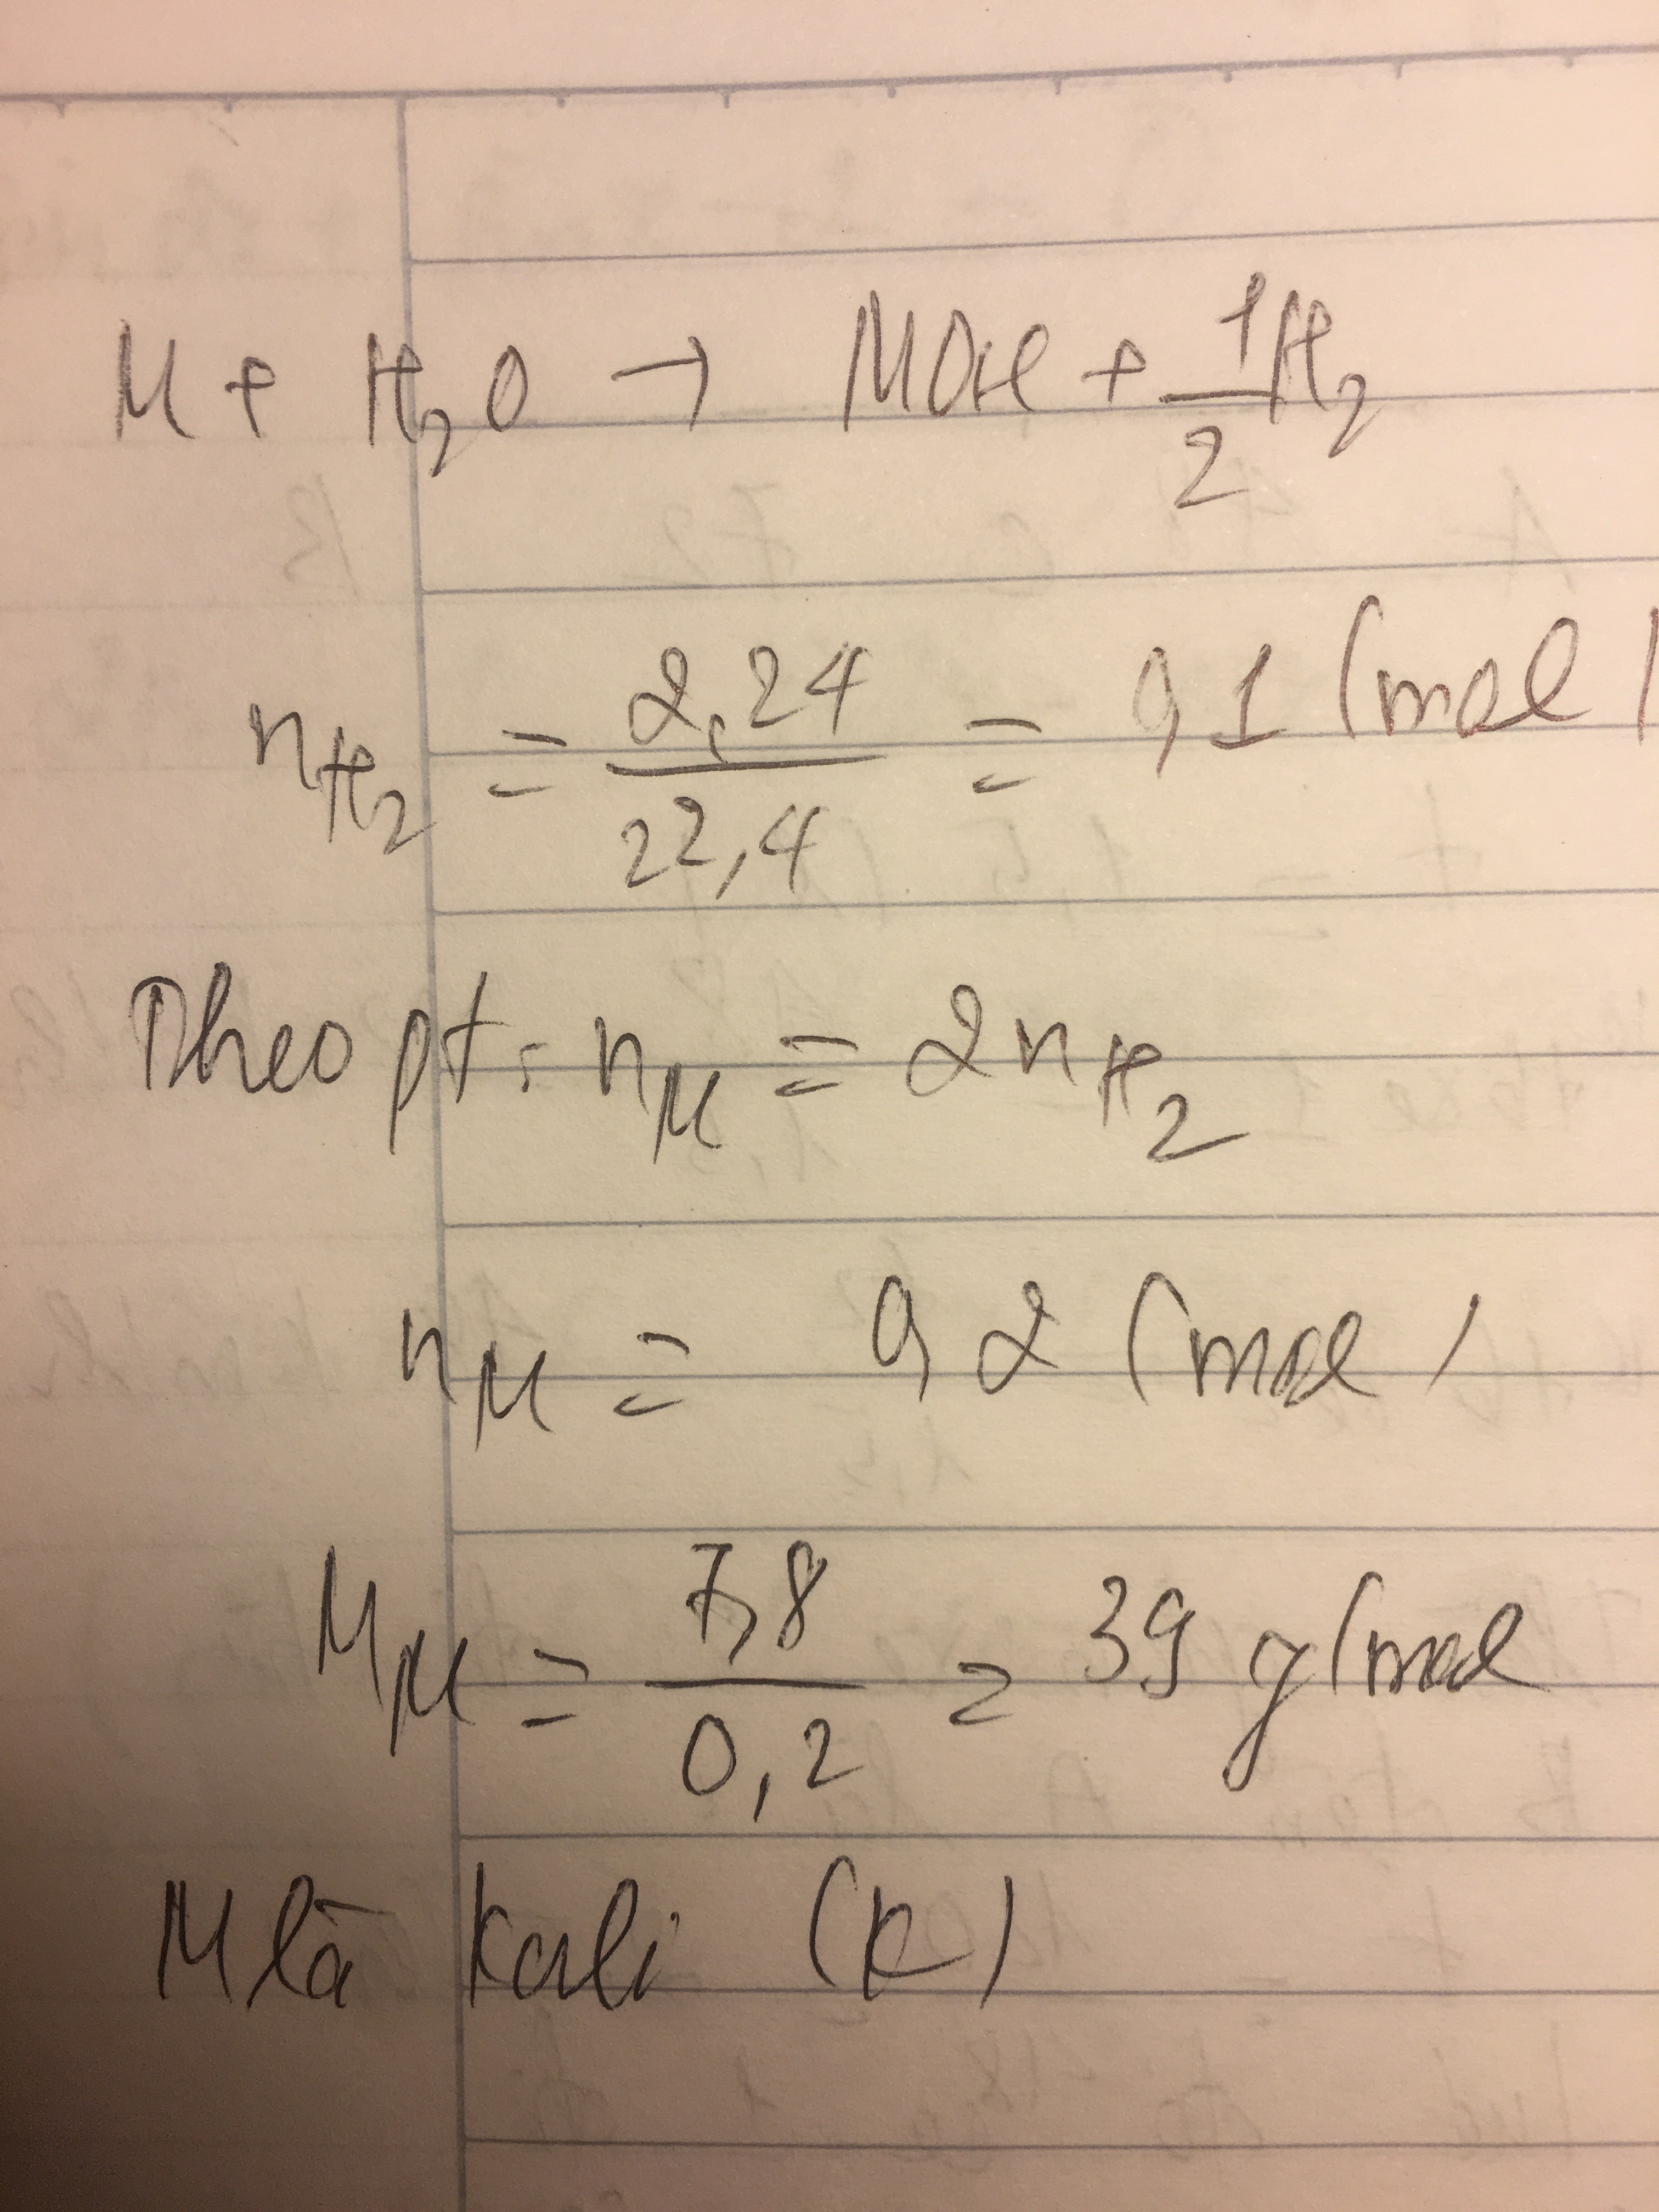 M + H₂O → MOH + 1/2 H₂
n H₂ = 2,24 / 22,4 = 0,1 (mol)
Theo pt: n M = 2 n H₂
n M = 0,2 (mol)
M M = 7,8 / 0,2 = 39 g/mol
M là Kali (K)